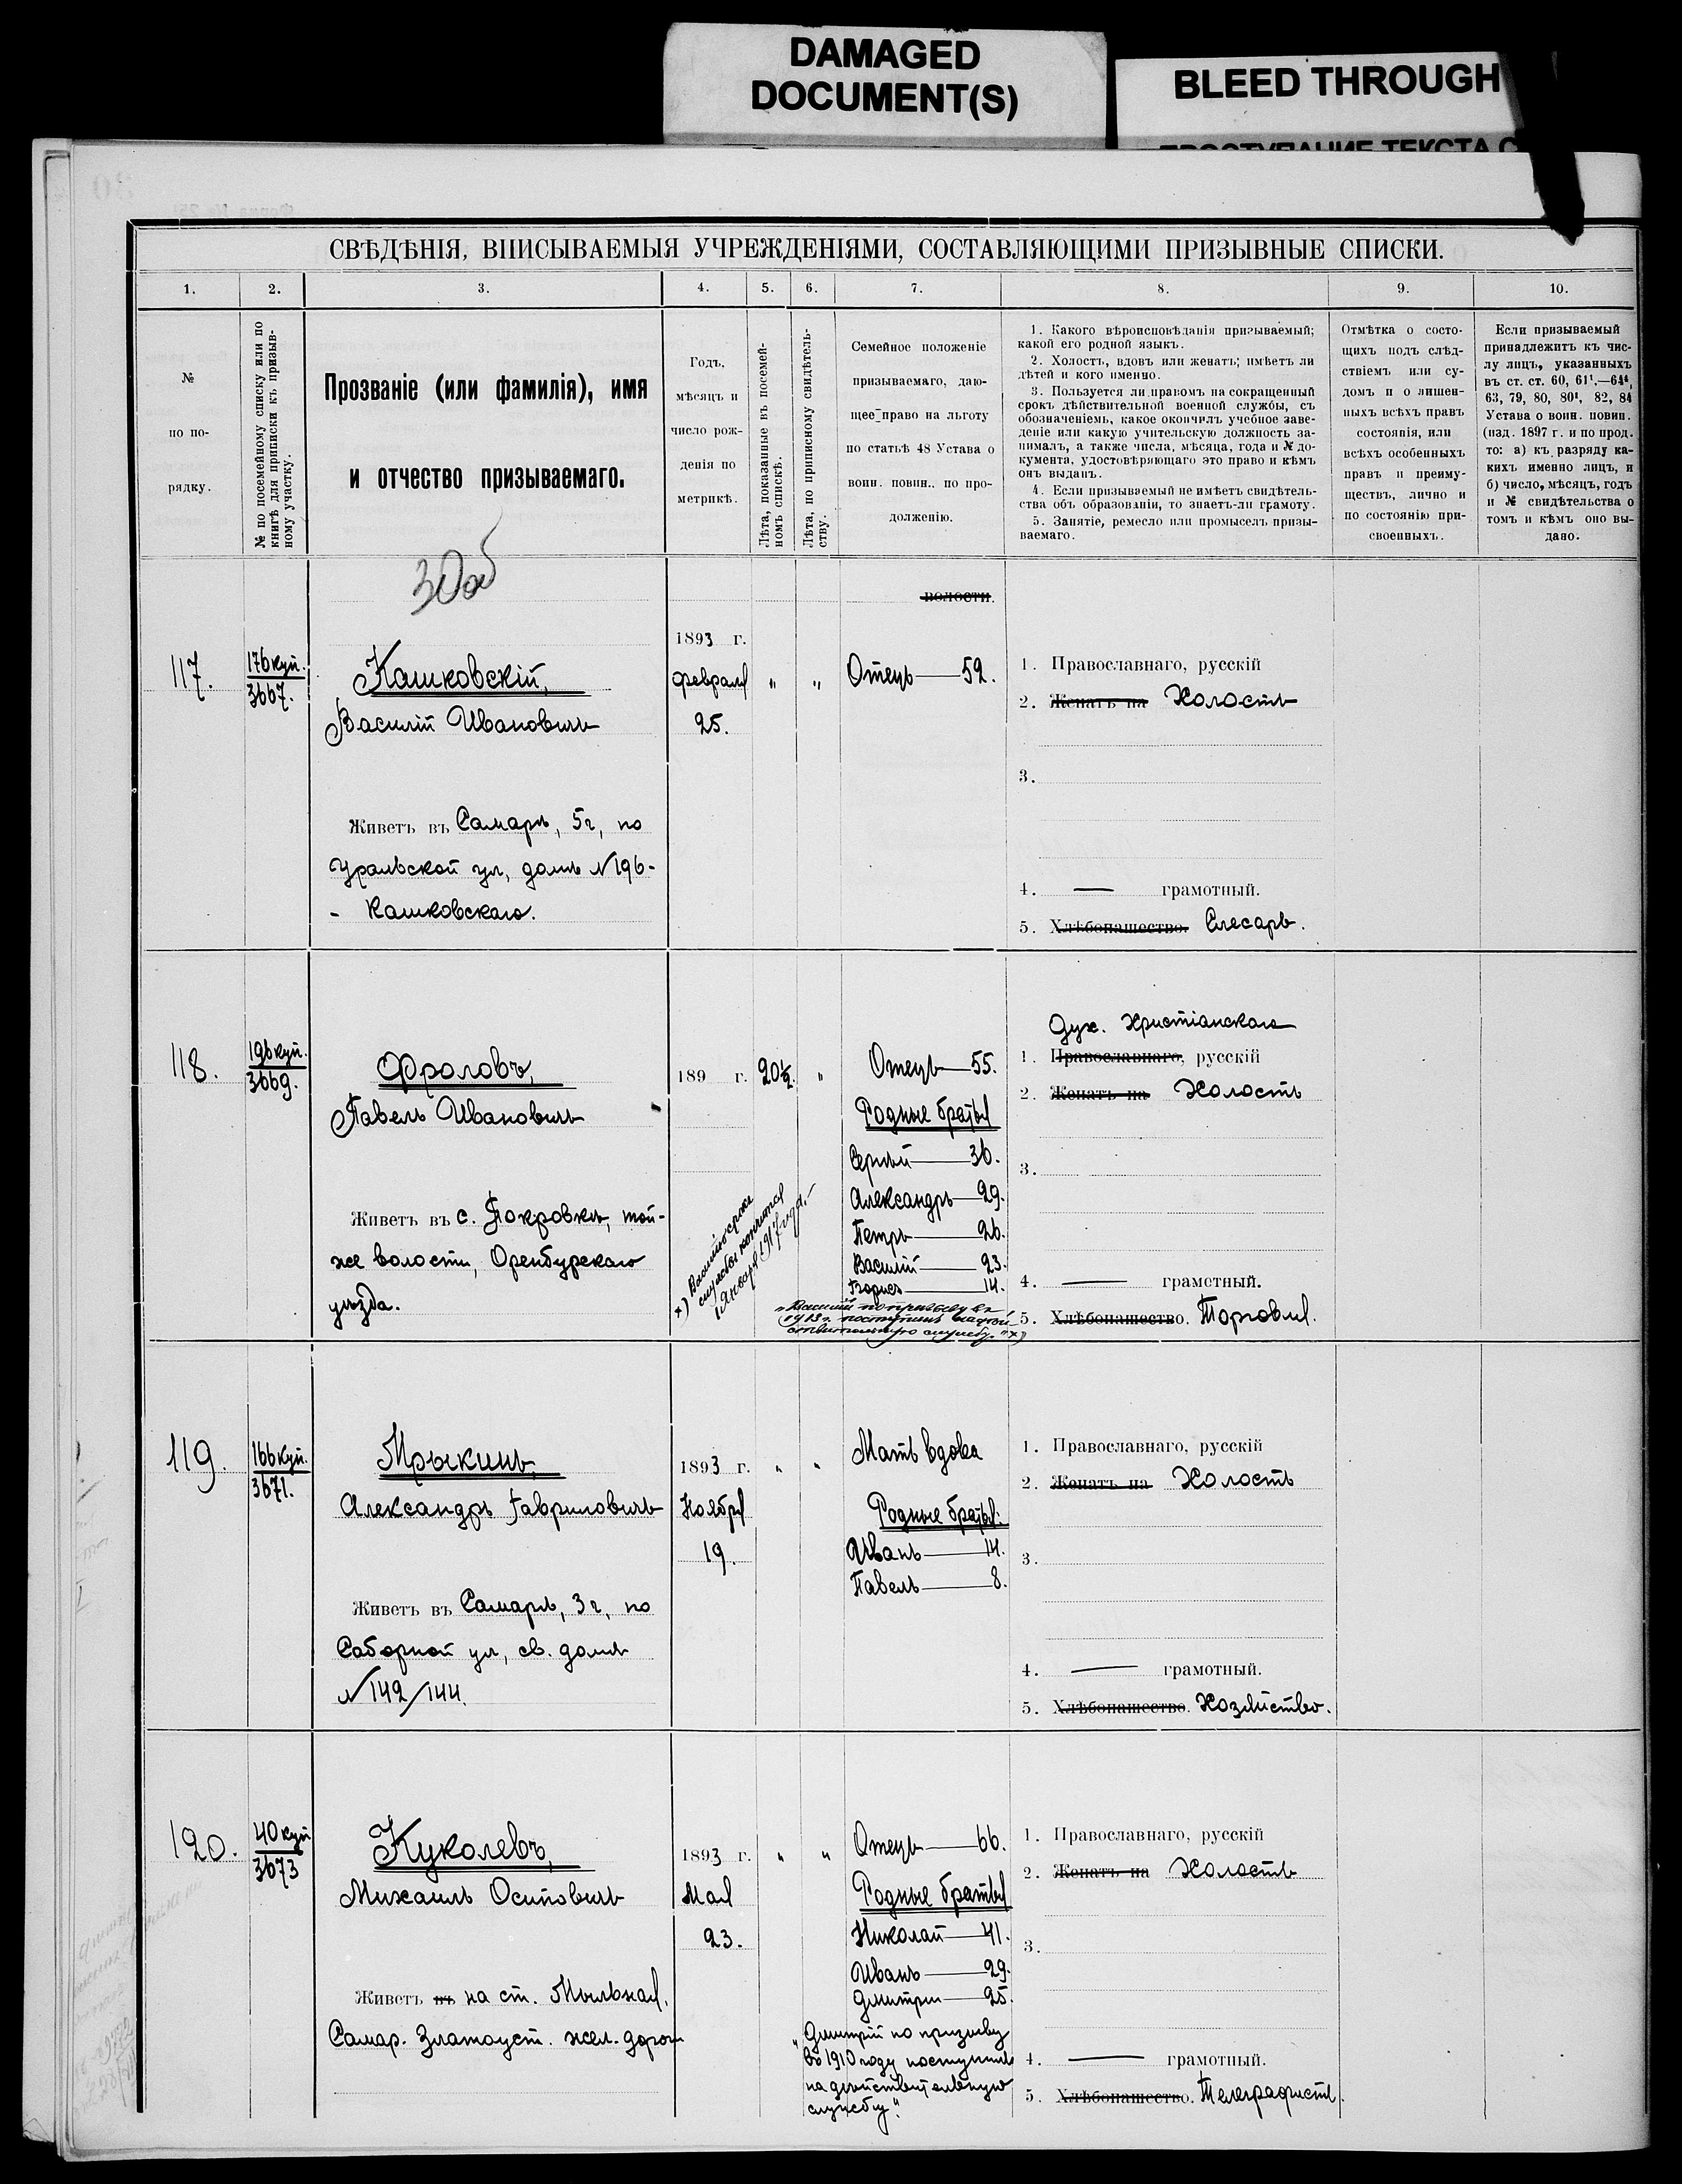 DAMAGED
DOCUMENT(S)
BLEED THROUGH
СВѢДѢНІЯ, ВПИСЫВАЕМЫЯ УЧРЕЖДЕНІЯМИ, СОСТАВЛЯЮЩИМИ ПРИЗЫВНЫЕ СПИСКИ.
1. 2. 3. 4. 5. 6. 7. 8. 9. 10.
№
по по-
рядку.
№ по посемейному списку или по
книгѣ для приписки къ призыв-
ному участку.
Прозваніе (или фамилія), имя
и отчество призываемаго.
Годъ,
мѣсяцъ и
число рож-
денія по
метрикѣ.
Лѣта, показанные въ посемей-
номъ спискѣ.
Лѣта, по приписному свидѣтель-
ству.
Семейное положеніе
призываемаго, даю-
щее право на льготу
по статьѣ 48 Устава о
воин. повин., по про-
долженію.
1. Какого вѣроисповѣданія призываемый;
какой его родной языкъ.
2. Холостъ, вдовъ или женатъ; имѣетъ ли
дѣтей и кого именно.
3. Пользуется ли правомъ на сокращенный
срокъ дѣйствительной военной службы, съ
обозначеніемъ, какое окончилъ учебное заве-
деніе или какую учительскую должность за-
нималъ, а также числа, мѣсяца, года и № до-
кумента, удостовѣряющаго это право и кѣмъ
онъ выданъ.
4. Если призываемый не имѣетъ свидѣтель-
ства объ образованіи, то знаетъ-ли грамоту.
5. Занятіе, ремесло или промыселъ призы-
ваемаго.
Отмѣтка о состо-
щихъ подъ слѣд-
ствіемъ или су-
домъ и о лишен-
ныхъ всѣхъ правъ
состоянія, или
всѣхъ особенныхъ
правъ и преиму-
ществъ, лично и
по состоянію при-
своенныхъ.
Если призываемый
принадлежитъ къ чис-
лу лицъ, указанныхъ
въ ст. ст. 60, 61¹.—64⁴,
63, 79, 80, 80¹, 82, 84
Устава о воин. повин.
(изд. 1897 г. и по прод.
то: а) къ разряду ка-
кихъ именно лицъ, и
б) число, мѣсяцъ, годъ
и № свидѣтельства о
томъ и кѣмъ оно вы-
дано.
волости.
117.
176 куп.
3667.
Кашковскій,
Василій Ивановичъ
Живетъ въ Самарѣ, 5 г, по
Уральской ул, домъ № 196-
- Кашковскаго.
1893 г.
Февраля
25.
" "
Отецъ—59.
1. Православнаго, русскій
2. Женатъ на Холостъ
3.
4. — грамотный.
5. Хлѣбопашество. Слесарь.
118.
196 куп.
3669.
Фроловъ,
Павелъ Ивановичъ
Живетъ въ с. Покровкѣ, той-
же волости, Оренбургскаго
уѣзда.
189 г. 20½. "
х) Василію срокъ
службы кончится
1 Января 1917 года.
Отецъ—55.
Родные братья
Сергѣй—36.
Александръ—29.
Петръ—26.
Василій—23.
Борисъ—14.
"Василій по призыву въ
1913 г. поступилъ на дѣй
ствительную службу." х)
Дух. Христіанскаго
1. Православнаго, русскій
2. Женатъ на Холостъ
3.
4. — грамотный.
5. Хлѣбопашество. Торговля.
119.
166 куп.
3671.
Мрыкинъ,
Александръ Гавриловичъ
Живетъ въ Самарѣ, 3 г, по
Соборной ул, св. домъ
№ 142/144.
1893 г.
Ноября
19.
" "
Мать вдова
Родные братья:
Иванъ—14.
Павелъ—8.
1. Православнаго, русскій
2. Женатъ на Холостъ
3.
4. — грамотный.
5. Хлѣбопашество. Хозяйство.
120.
40 куп
3673
Куколевъ,
Михаилъ Осиповичъ
Живетъ въ на ст. Мыльная,
Самар. Златоуст. жел. дорог
1893 г.
Мая
23.
" "
Отецъ—66.
Родные братья
Николай—41.
Иванъ—29.
Дмитрій—25.
"Дмитрій по призыву
въ 1910 году поступилъ
на дѣйствительную
службу".
1. Православнаго, русскій
2. Женатъ на Холостъ
3.
4. — грамотный.
5. Хлѣбопашество. Телеграфистъ.